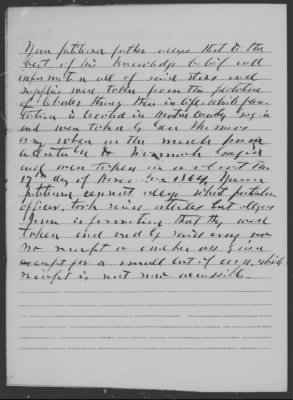 Your petitioner further alleges that to the
best of his knowledge belief and
information all of said stores and
supplies were taken from the plantation
of Charles Thing then in life. which plan-
tation is located in County Georgia
and were taken by Gen Shermans
army when on the march from
Atlanta to Savannah Georgia
and were taken on or about the
day of 1864. Your
petitioner cannot allege what particular
officer, took said articles but alleges
upon information that they were
taken and used by said army and
no receipt or voucher was given
except for a small lot of which
receipt is not now accessible.